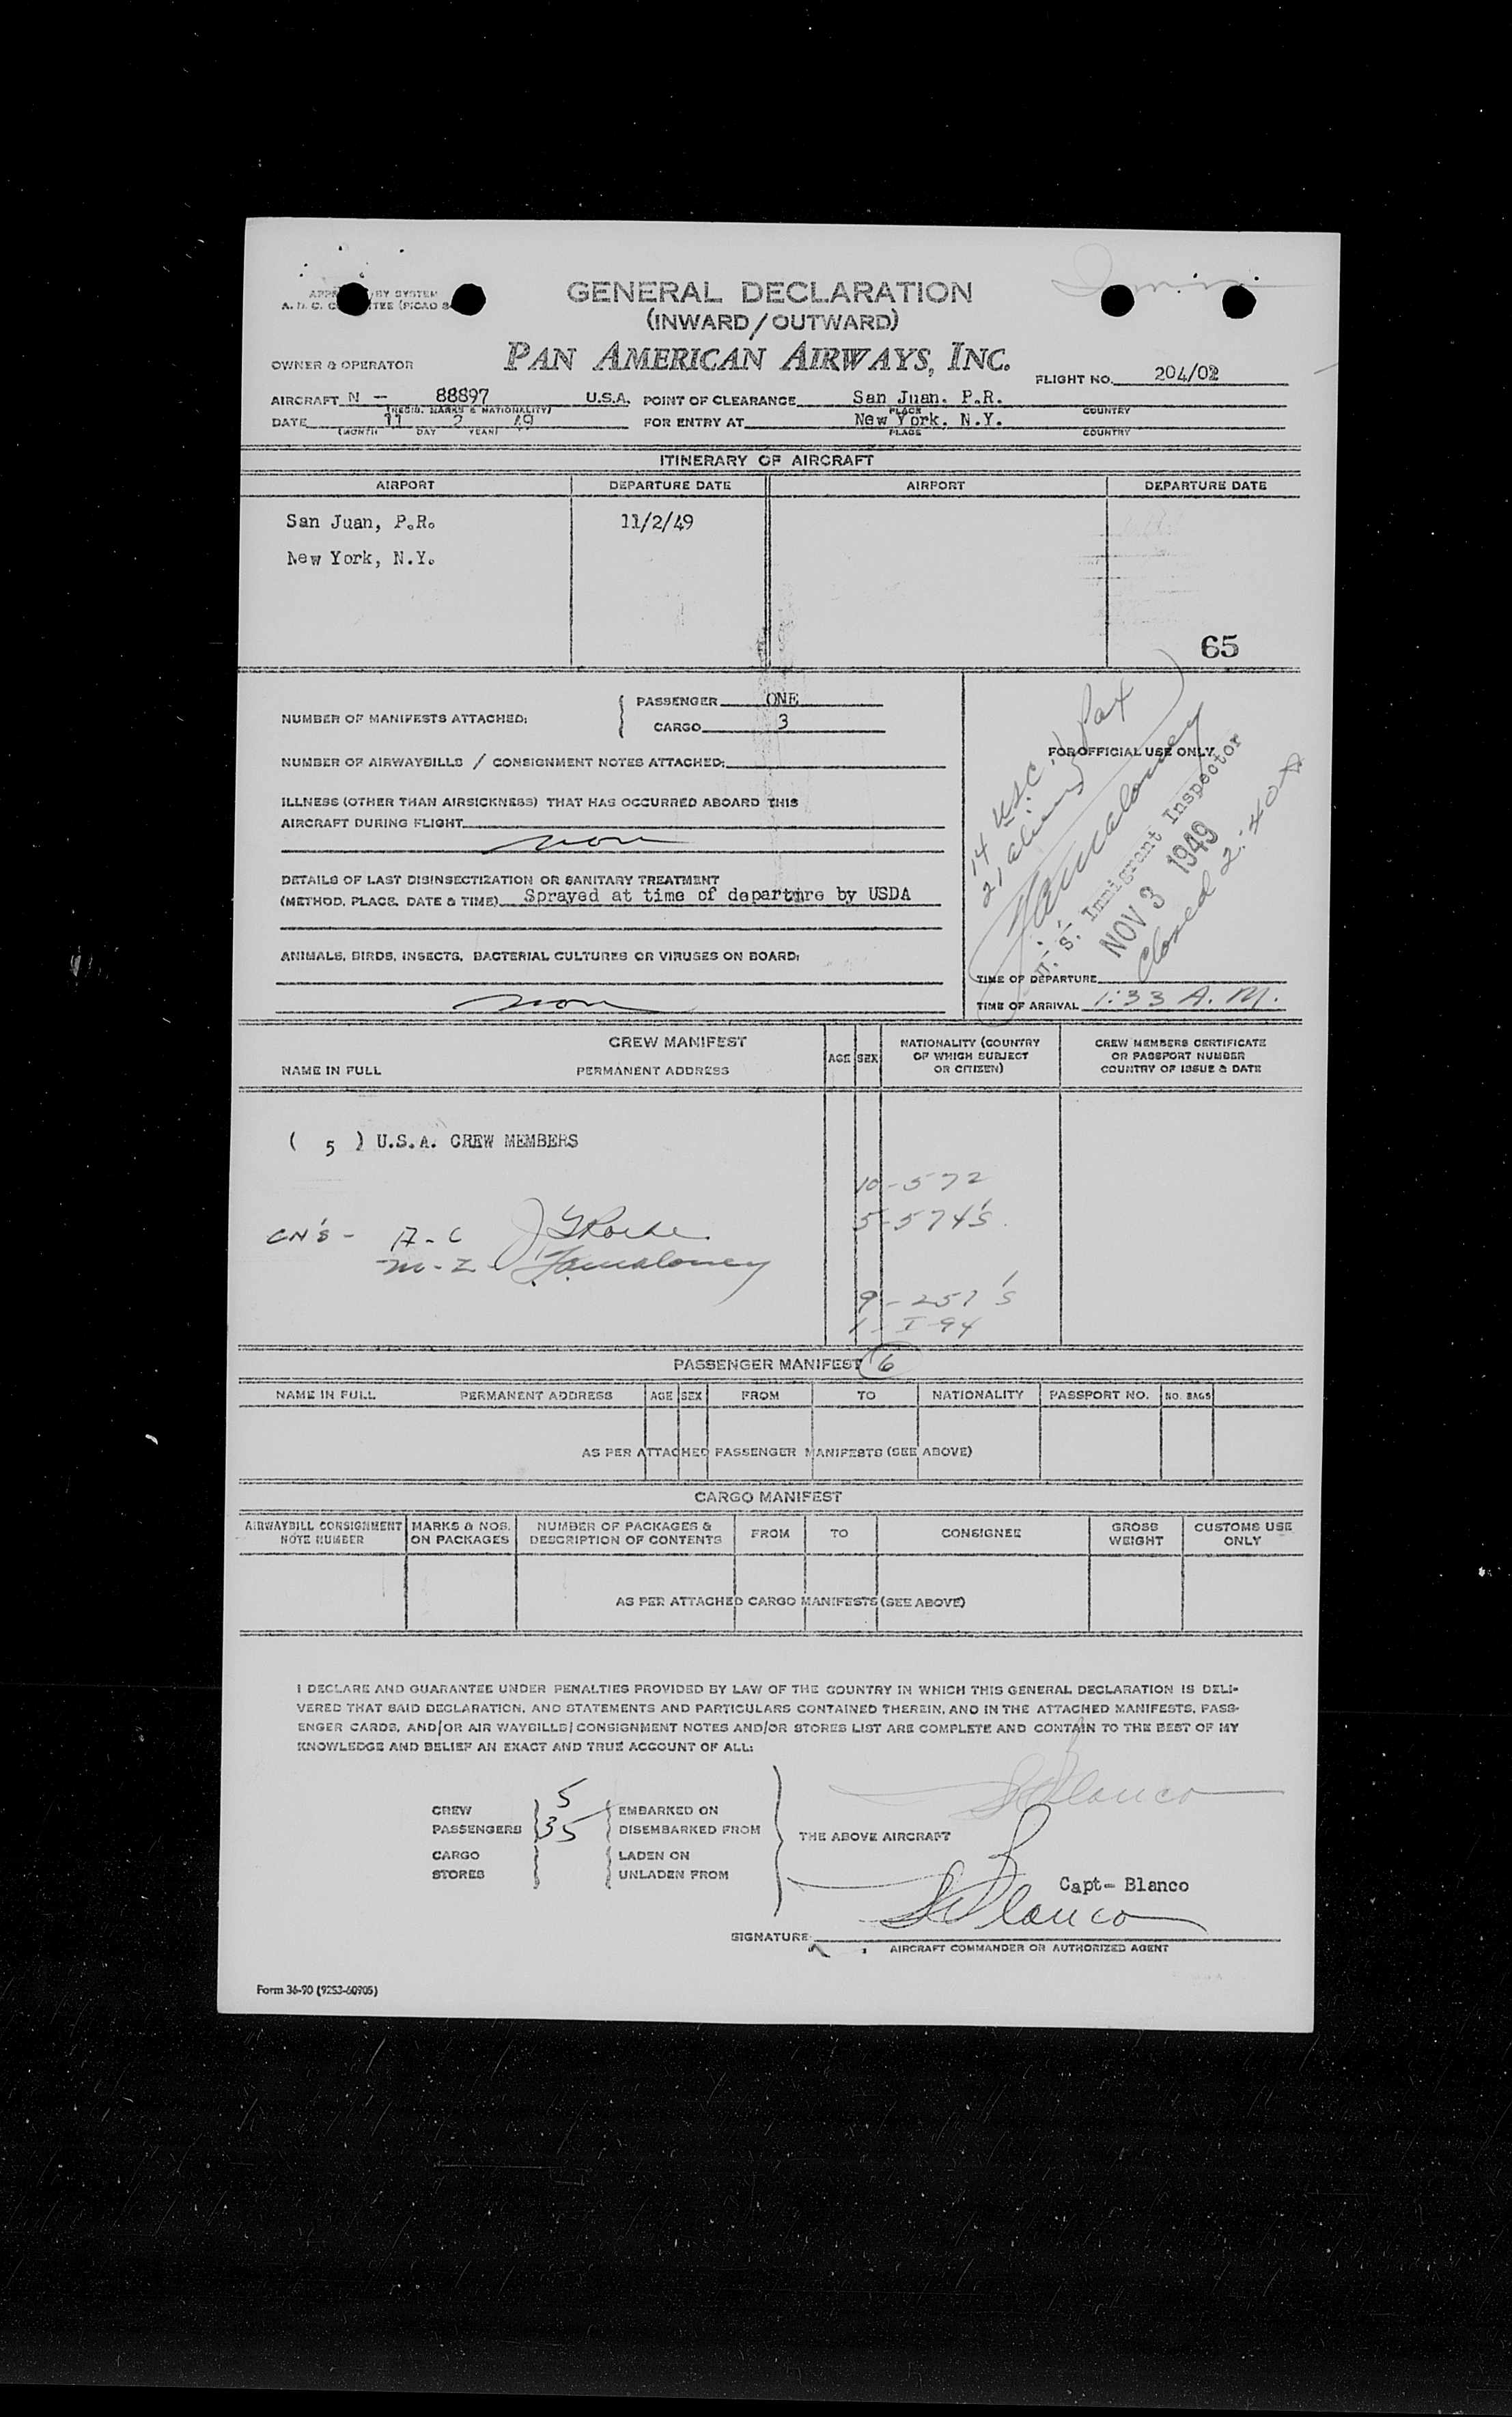 GENERAL DECLARATION
(INWARD/OUTWARD)
PAN AMERICAN AIRWAYS, INC.
OWNER & OPERATOR
FLIGHT NO. 204/02
AIRCRAFT N - 88897 U.S.A. POINT OF CLEARANCE San Juan. P.R.
(REGIS. MARKS & NATIONALITY) PLACE COUNTRY
DATE 11 2 49 FOR ENTRY AT New York. N.Y.
(MONTH DAY YEAR) PLACE COUNTRY
ITINERARY OF AIRCRAFT
AIRPORT DEPARTURE DATE AIRPORT DEPARTURE DATE
San Juan, P.R. 11/2/49
New York, N.Y.
65
NUMBER OF MANIFESTS ATTACHED: PASSENGER ONE
CARGO 3
NUMBER OF AIRWAYBILLS / CONSIGNMENT NOTES ATTACHED:
ILLNESS (OTHER THAN AIRSICKNESS) THAT HAS OCCURRED ABOARD THIS
AIRCRAFT DURING FLIGHT
non
DETAILS OF LAST DISINSECTIZATION OR SANITARY TREATMENT
(METHOD, PLACE, DATE & TIME) Sprayed at time of departure by USDA
ANIMALS, BIRDS, INSECTS, BACTERIAL CULTURES OR VIRUSES ON BOARD:
non
FOR OFFICIAL USE ONLY
14 USC
21 aliens
Pax
U. S. Immigrant Inspector
NOV 3 1949
Closed 2:40A
TIME OF DEPARTURE
TIME OF ARRIVAL 1:33 A.M.
CREW MANIFEST
NAME IN FULL PERMANENT ADDRESS AGE SEX NATIONALITY (COUNTRY OF WHICH SUBJECT OR CITIZEN) CREW MEMBERS CERTIFICATE OR PASSPORT NUMBER COUNTRY OF ISSUE & DATE
( 5 ) U.S.A. CREW MEMBERS
10-572
5-574's
CN's - A-C
M-Z
9-257's
1-I-94
PASSENGER MANIFEST 6
NAME IN FULL PERMANENT ADDRESS AGE SEX FROM TO NATIONALITY PASSPORT NO. NO. BAGS
AS PER ATTACHED PASSENGER MANIFESTS (SEE ABOVE)
CARGO MANIFEST
AIRWAYBILL CONSIGNMENT NOTE NUMBER MARKS & NOS. ON PACKAGES NUMBER OF PACKAGES & DESCRIPTION OF CONTENTS FROM TO CONSIGNEE GROSS WEIGHT CUSTOMS USE ONLY
AS PER ATTACHED CARGO MANIFESTS (SEE ABOVE)
I DECLARE AND GUARANTEE UNDER PENALTIES PROVIDED BY LAW OF THE COUNTRY IN WHICH THIS GENERAL DECLARATION IS DELI-
VERED THAT SAID DECLARATION, AND STATEMENTS AND PARTICULARS CONTAINED THEREIN, AND IN THE ATTACHED MANIFESTS, PASS-
ENGER CARDS, AND/OR AIR WAYBILLS/CONSIGNMENT NOTES AND/OR STORES LIST ARE COMPLETE AND CONTAIN TO THE BEST OF MY
KNOWLEDGE AND BELIEF AN EXACT AND TRUE ACCOUNT OF ALL:
CREW 5 EMBARKED ON
PASSENGERS 35 DISEMBARKED FROM
THE ABOVE AIRCRAFT
CARGO LADEN ON
STORES UNLADEN FROM
Capt- Blanco
SIGNATURE
AIRCRAFT COMMANDER OR AUTHORIZED AGENT
Form 36-90 (9253-60905)